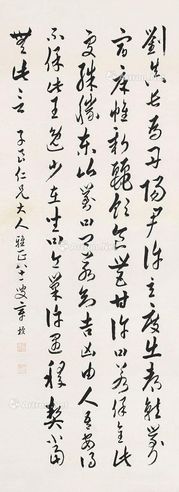 劉真長為丹陽尹許玄度出都就劉
宿床帷新麗飲食豐甘許曰若保全此
處殊勝東山劉曰卿若知吉凶由人吾安得
不保此王逸少在坐曰令巢許遇稷契當
無此言 子良仁兄大人雅正 八十一叟章梫